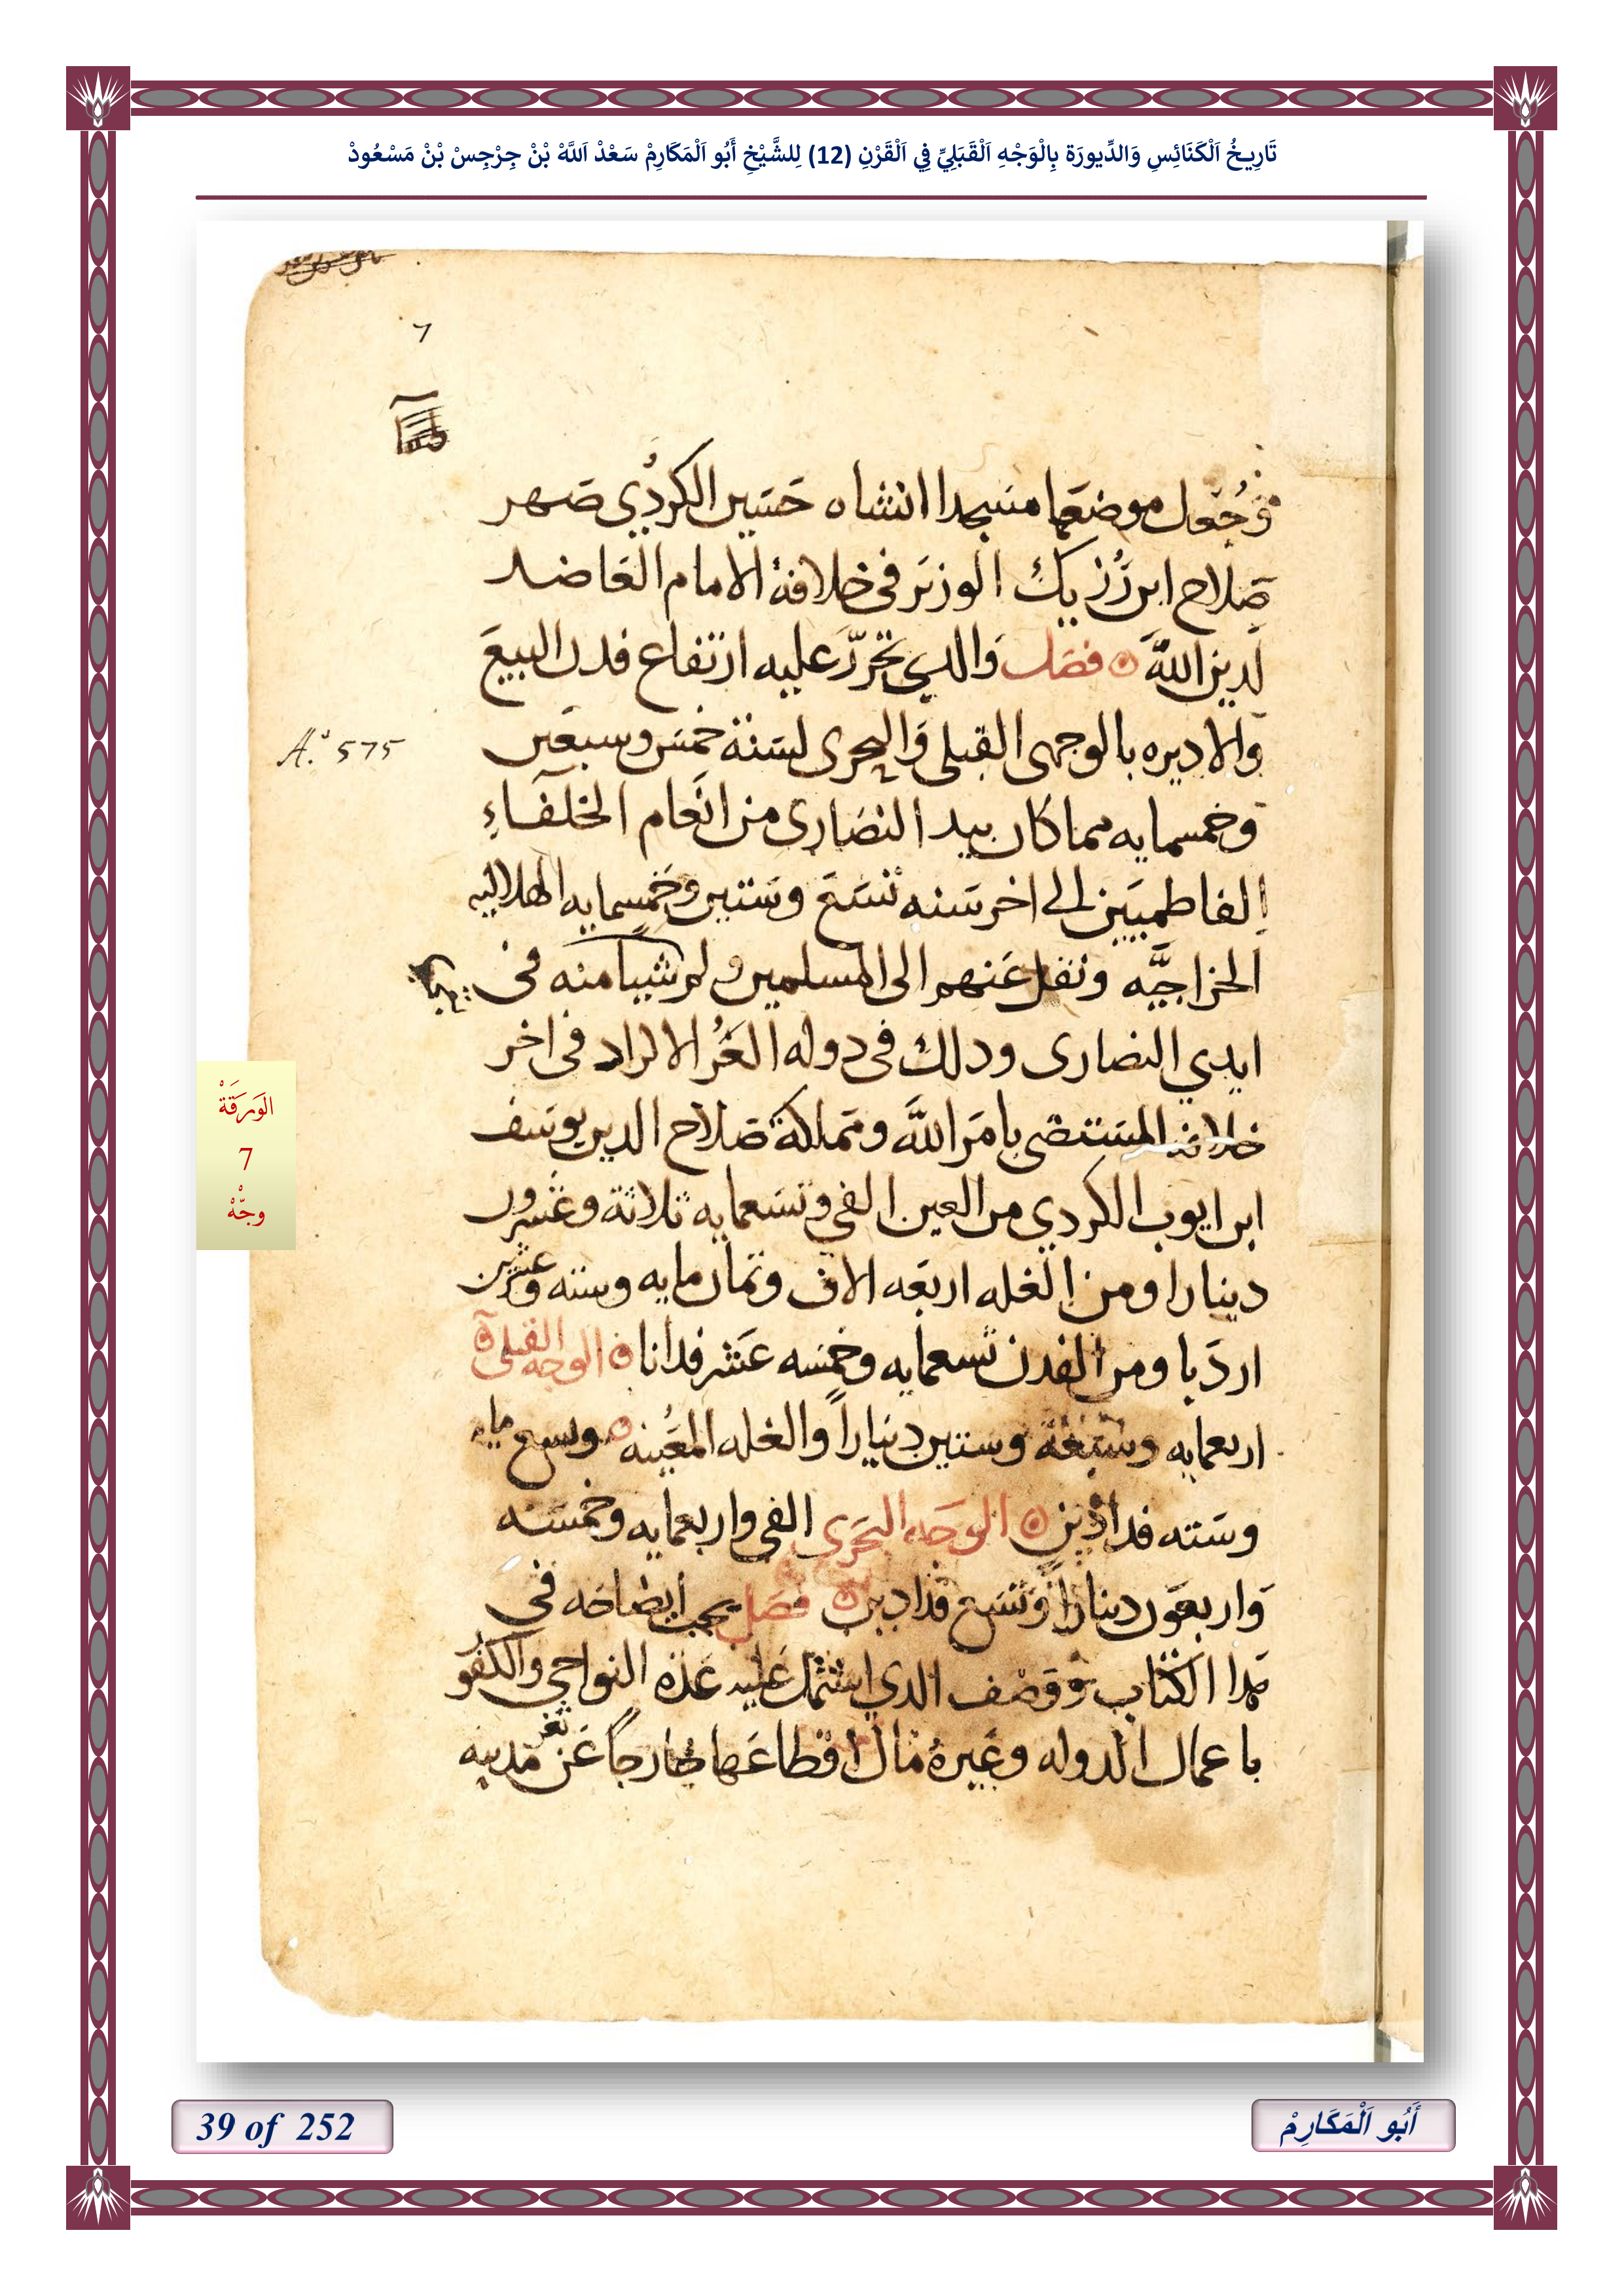 تَارِيخُ اَلْكَنَائِسِ وَالدِّيورَة بِالْوَجْهِ اَلْقَبَلِيِّ فِي اَلْقَرْنِ (12) لِلشَّيْخِ أَبُو اَلْمَكَارِمْ سَعْدْ اَللَّهْ بْنْ جِرْجِسْ بْنْ مَسْعُودْ
7
وجُعل موضعها مسجدا انشاه حسين الكردي صهر
صلاح ابن رُزيك الوزير في خلافة الامام العاضد
لدين الله فصل والدي تحرر عليه ارتفاع فدن البيع
A.º 575
والاديره بالوجهى القبلى والبحرى لسنة خمس وسبعين
وخمسمايه مما كان بيد النصارى من انعام الخلفاء
الفاطميين الى اخر سنه تسع وستين وخمسمايه الهلاليه
الخراجيَّه ونقل عنهم الى المسلمين ولم شيا منه فى
ايدي النصارى ودلك فى دوله الغُز الاكراد فى اخر
خلافة المستضى بامر الله ومملكة صلاح الدين يوسف
ابن ايوب الكردي من العين الفي وتسعمايه ثلاثة وعشرون
دينارا ومن الغله اربعه الاف وثمان مايه وسته وعشرين
اردبا ومن الفدن تسعمايه وخمسه عشر فدانا الوجه القبلى
اربعمايه وسبعة وستين ديناراً والغله المعينه وسبع مايه
وسته فدادين الوجه البحرى الفي واربعمايه وخمسه
واربعون ديناراً وتسع فدادين فصل يجب ايضاحه في
هدا الكتاب ووصف الدي اشتمل عليه عدة النواحي والكفو
باعمال الدوله وغيره مال اقطاعها خارجاً عن ثغر مدينه
الوَرَقَةْ
7
وجّهْ
39 of 252
أَبُو اَلْمَكَارِمْ